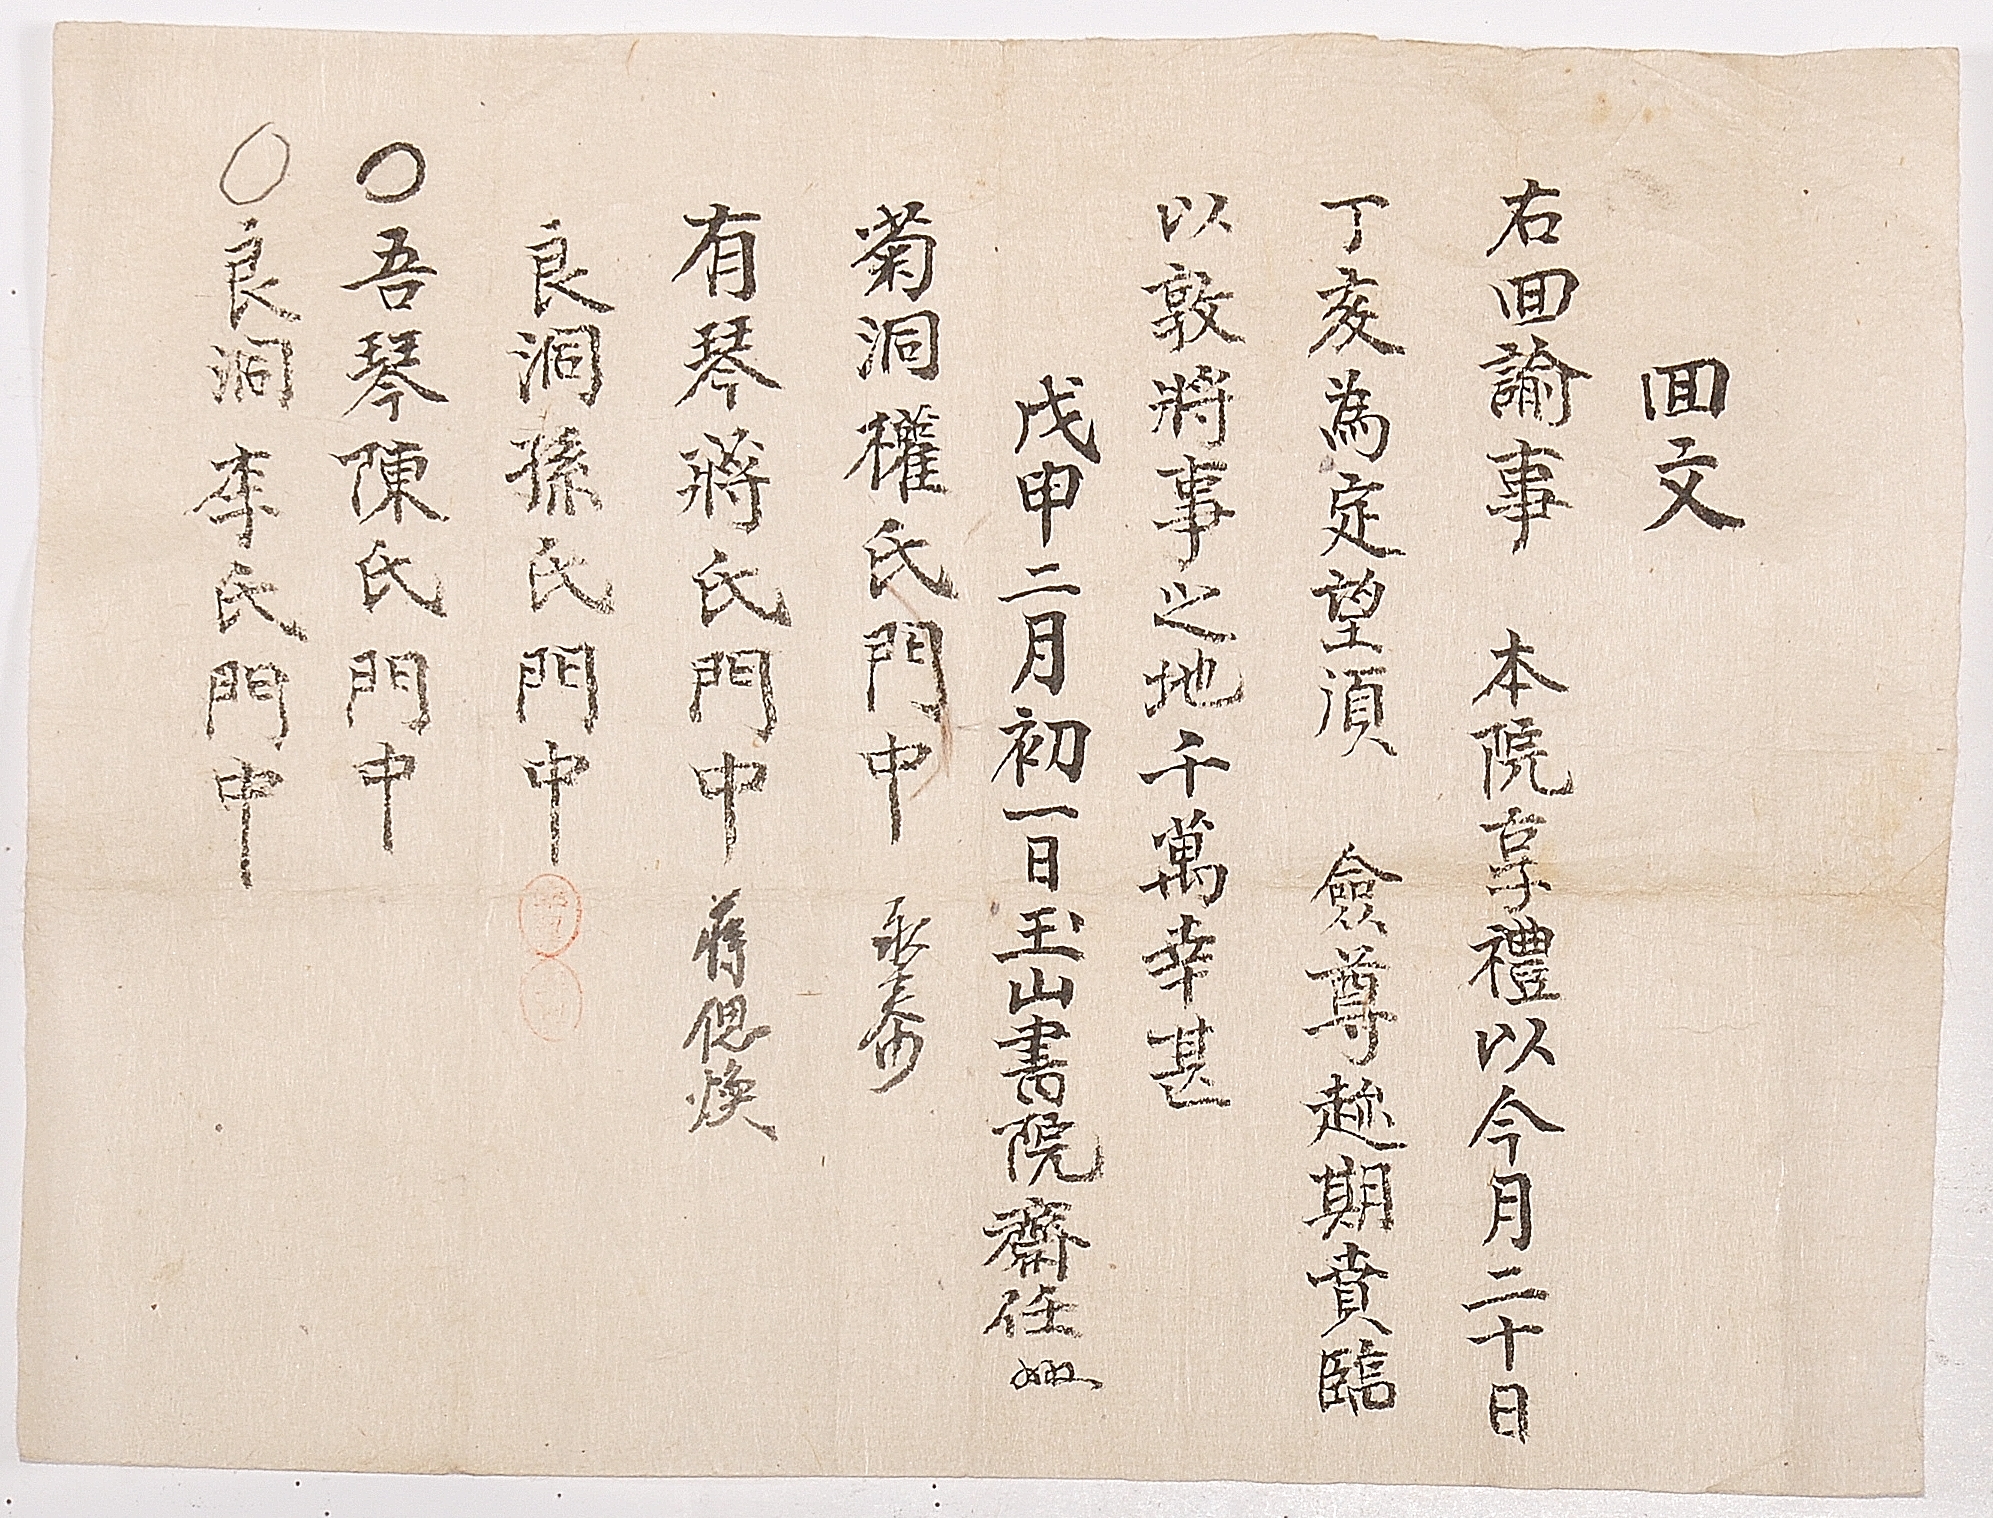 回文
右回諭事 本院享禮以今月二十日
丁亥為定望須 僉尊趂期賁臨
以敦將事之地千萬幸甚
戊申二月初一日玉山書院齋任
菊洞權氏門中 永泰
有琴蔣氏門中 蔣偲煥
良洞孫氏門中
〇吾琴陳氏門中
〇良洞李氏門中